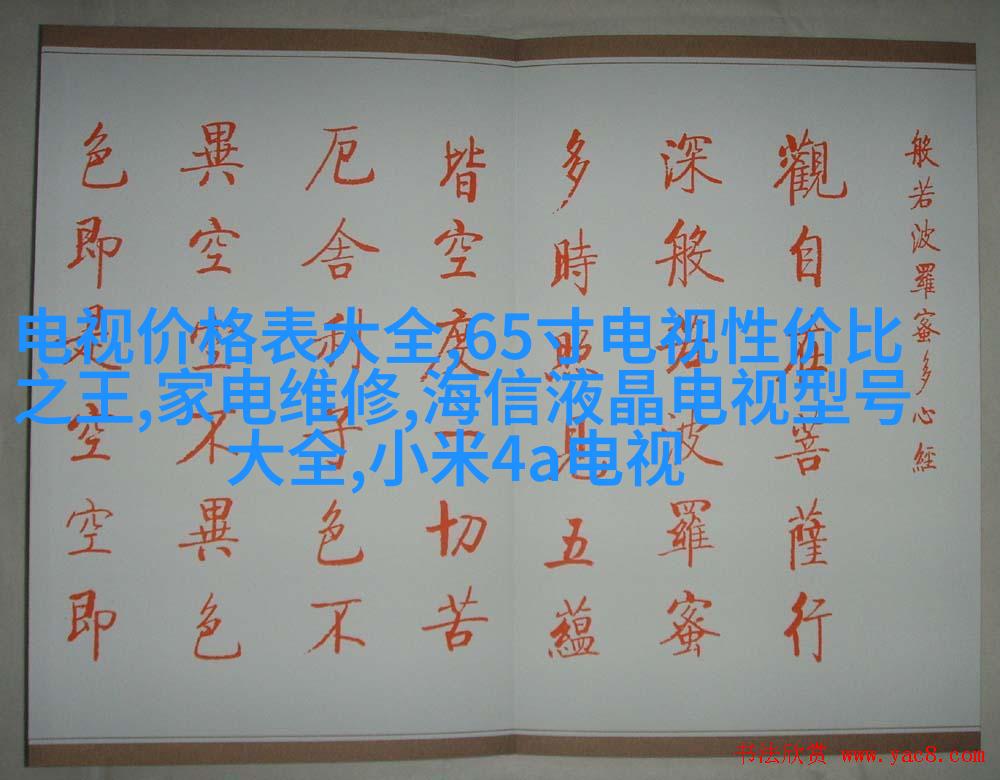 般若波羅蜜多心經
觀自在菩薩行
深般若波羅蜜
多時照見五蘊
皆空度一切苦
厄舍利子色不
異空空不異色
色即是空空即
电视价格表大全,65寸电视性价比
之王,家电维修,海信液晶电视型号
大全,小米4a电视
书法欣赏 www.yac8.com